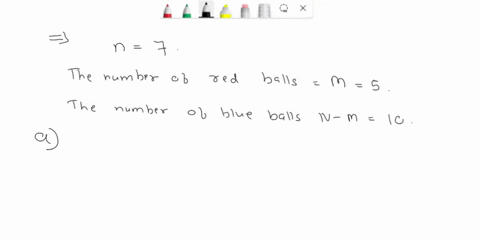 ⇒ n = 7.
The number of red balls = M = 5.
The number of blue balls N - M = 10.
a)